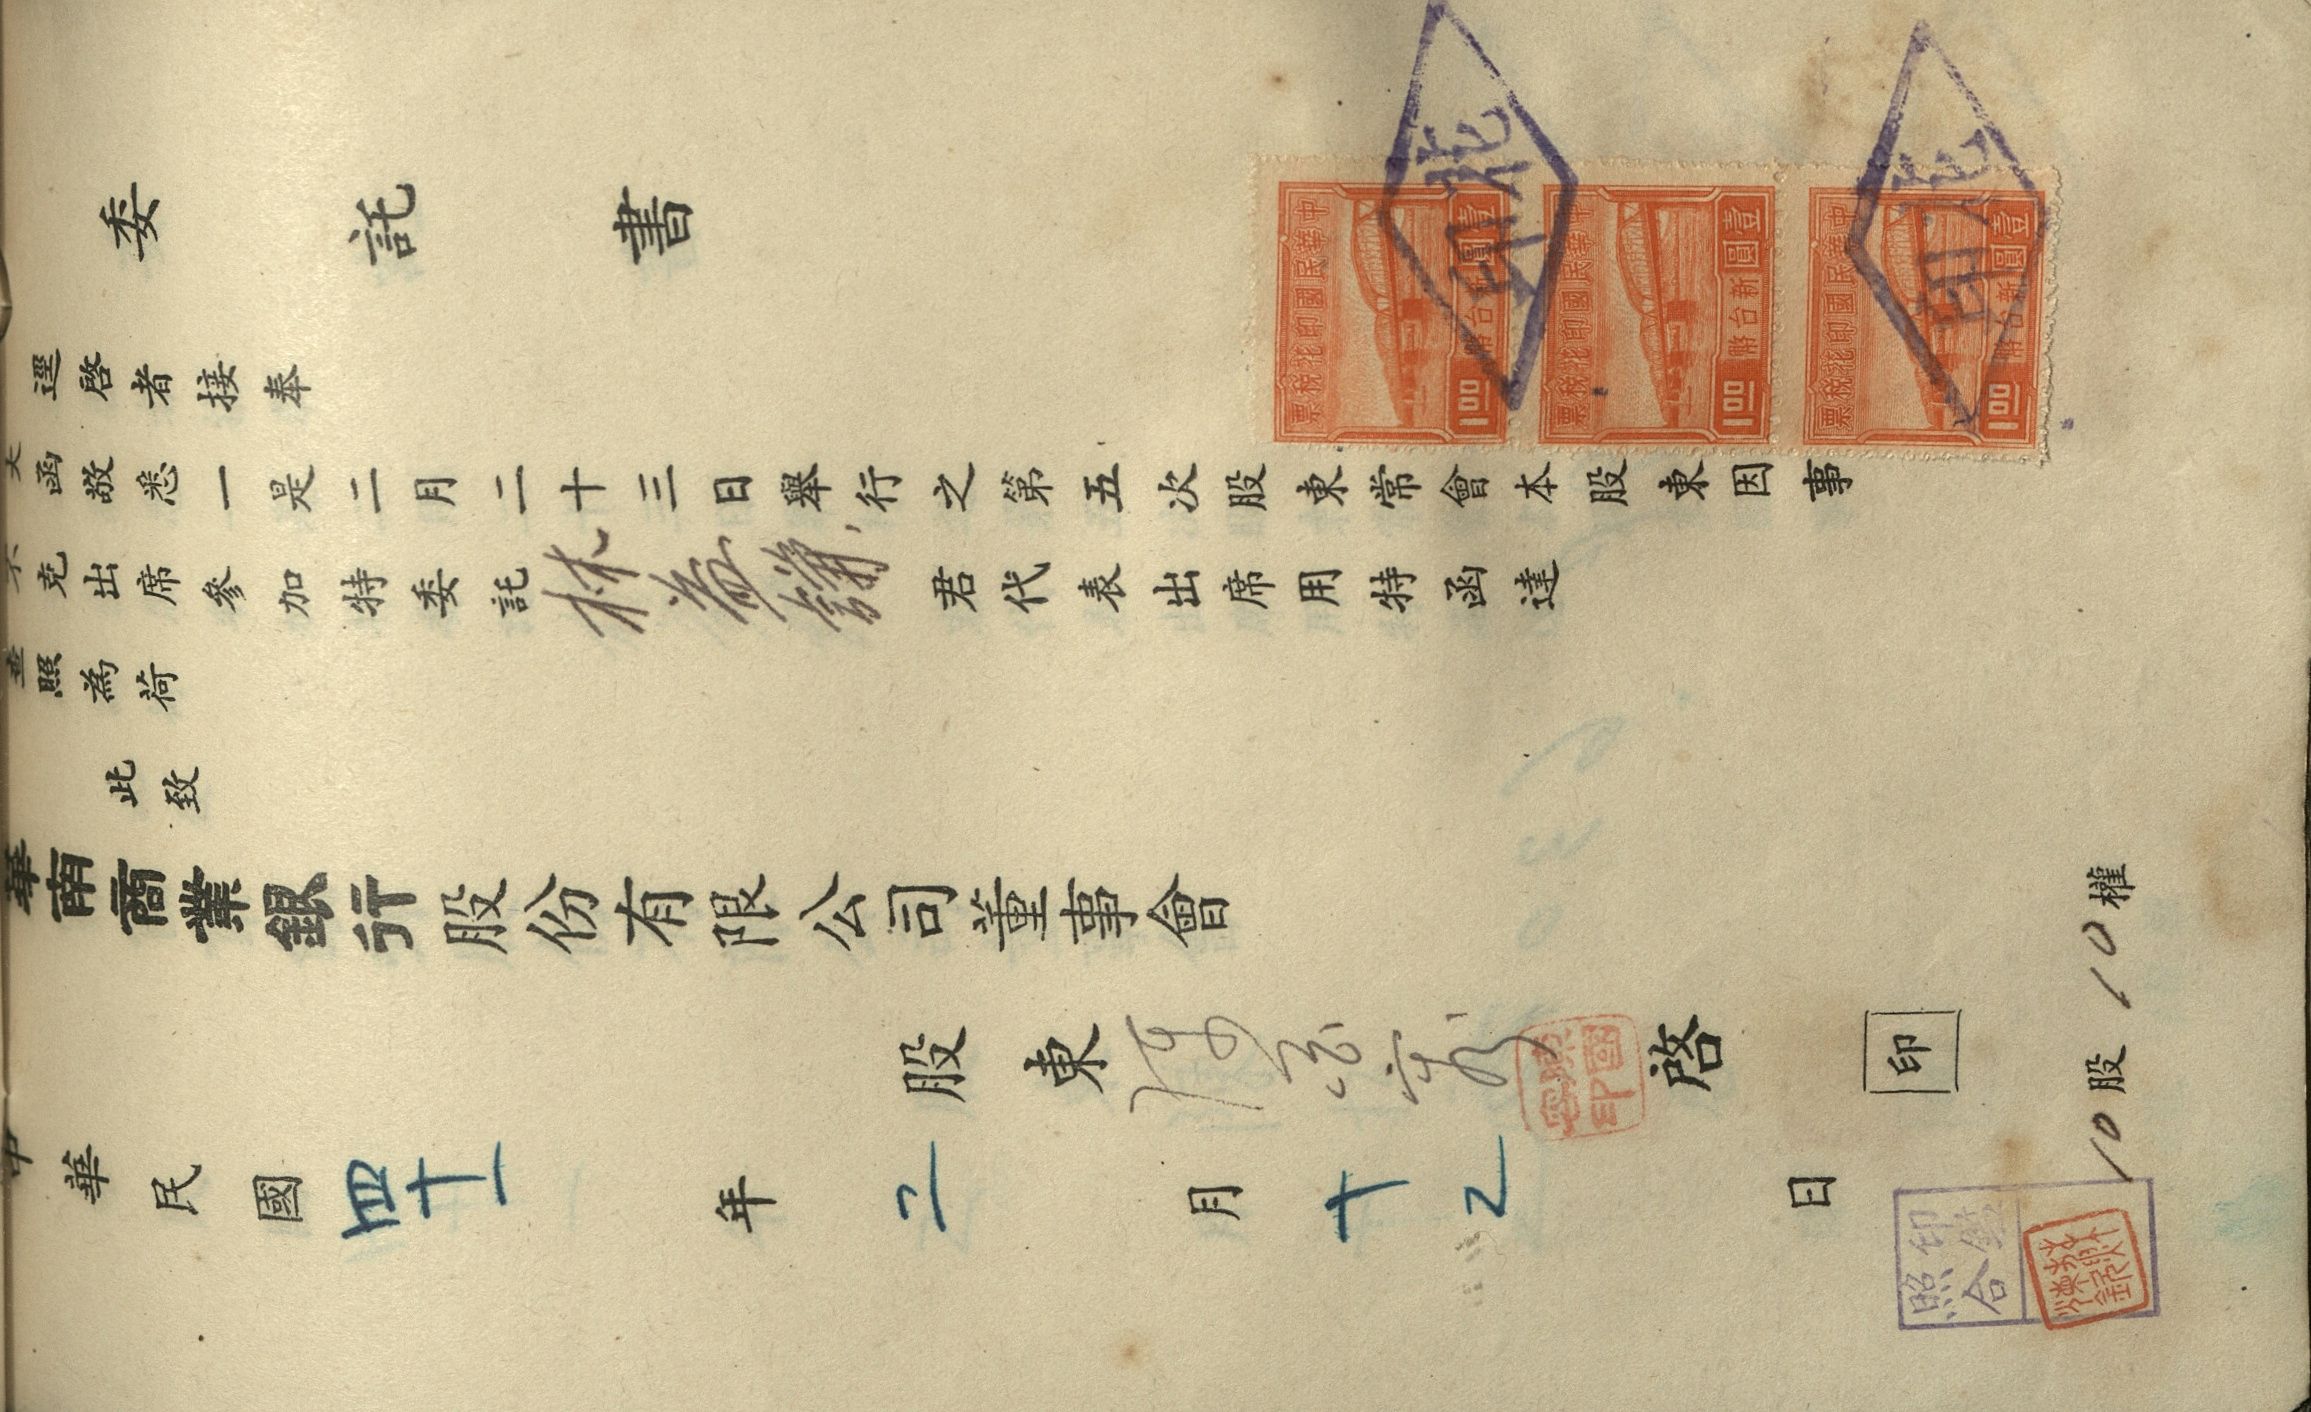 委託書
逕啓者接奉
大函敬悉一是二月二十三日舉行之第五次股東常會本股東因事
不克出席參加特委託林益謙君代表出席用特函達
垂照為荷
此致
華南商業銀行股份有限公司董事會
股東 啓 印
中華民國四十一年二月十乙日
10股 10權
印鑑照合
中華民國印花稅票
壹圓
新台幣
1.00
中華民國印花稅票
壹圓
新台幣
1.00
中華民國印花稅票
壹圓
新台幣
1.00